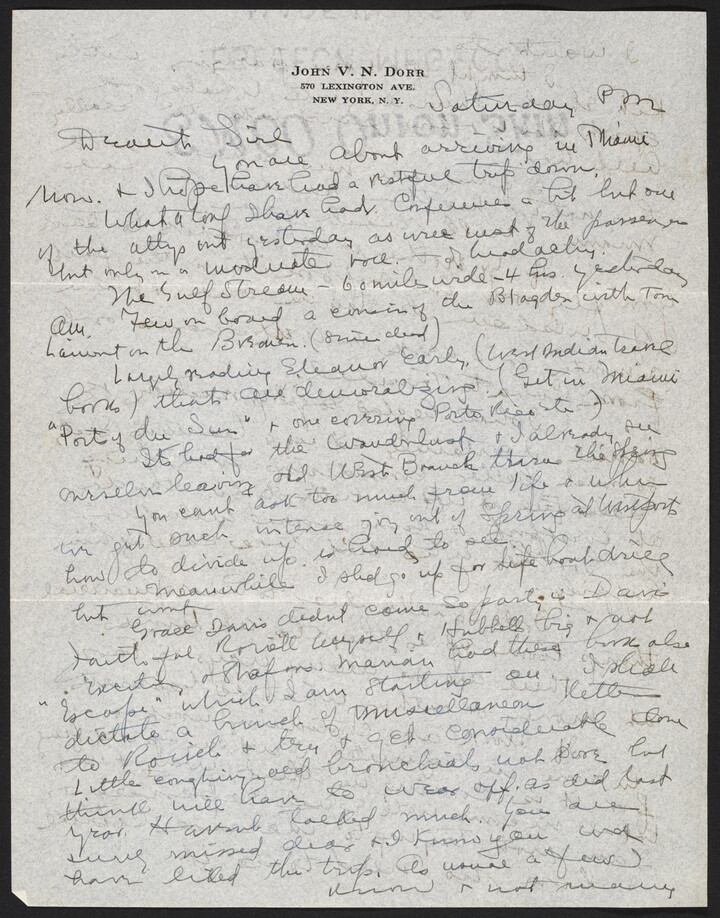 JOHN V. N. DORR
570 LEXINGTON AVE.
NEW YORK, N. Y.
Saturday PM
Dearest Girl
You are about arriving in Miami
now. & I hope have had a restful trip down.
What a lot I have had. Conference a bit but one
of the attys out yesterday as were most of the passengers
but only in a moderate roll.
The Gulf Stream – 60 miles wide – 4 hrs. yesterday
AM. Few on board a cousin of the Blagden with Tom
Lamont on the Bremen.
Largely reading Eleanor Early (West Indian travel
books) that are demoralizing. (Get in Miami
"Port of the Sun" & one covering Porto Rico etc –)
Its bad for the wanderlust & I already see
ourselves leaving old West Branch there the Spring
You cant ask too much from life & when
we get such intense joy out of Spring at Westport
how to divide up is hard to see
Meanwhile I shd go up for life boat drill
but wont
Grace Davis didnt come so party is Davis
faithful Rosich myself & Hubbell big & not
exciting & Shafors. Marian had these books also
"Escape" which I am starting on. I shall
dictate a bunch of miscellaneous letters
to Rosich & try & get considerable done
Little coughing old bronchials not sore but
think will have to wear off. as did last
year. Havent talked much. You are
surely missed dear & I know you wd
have liked the trip. As usual a few
know & not many